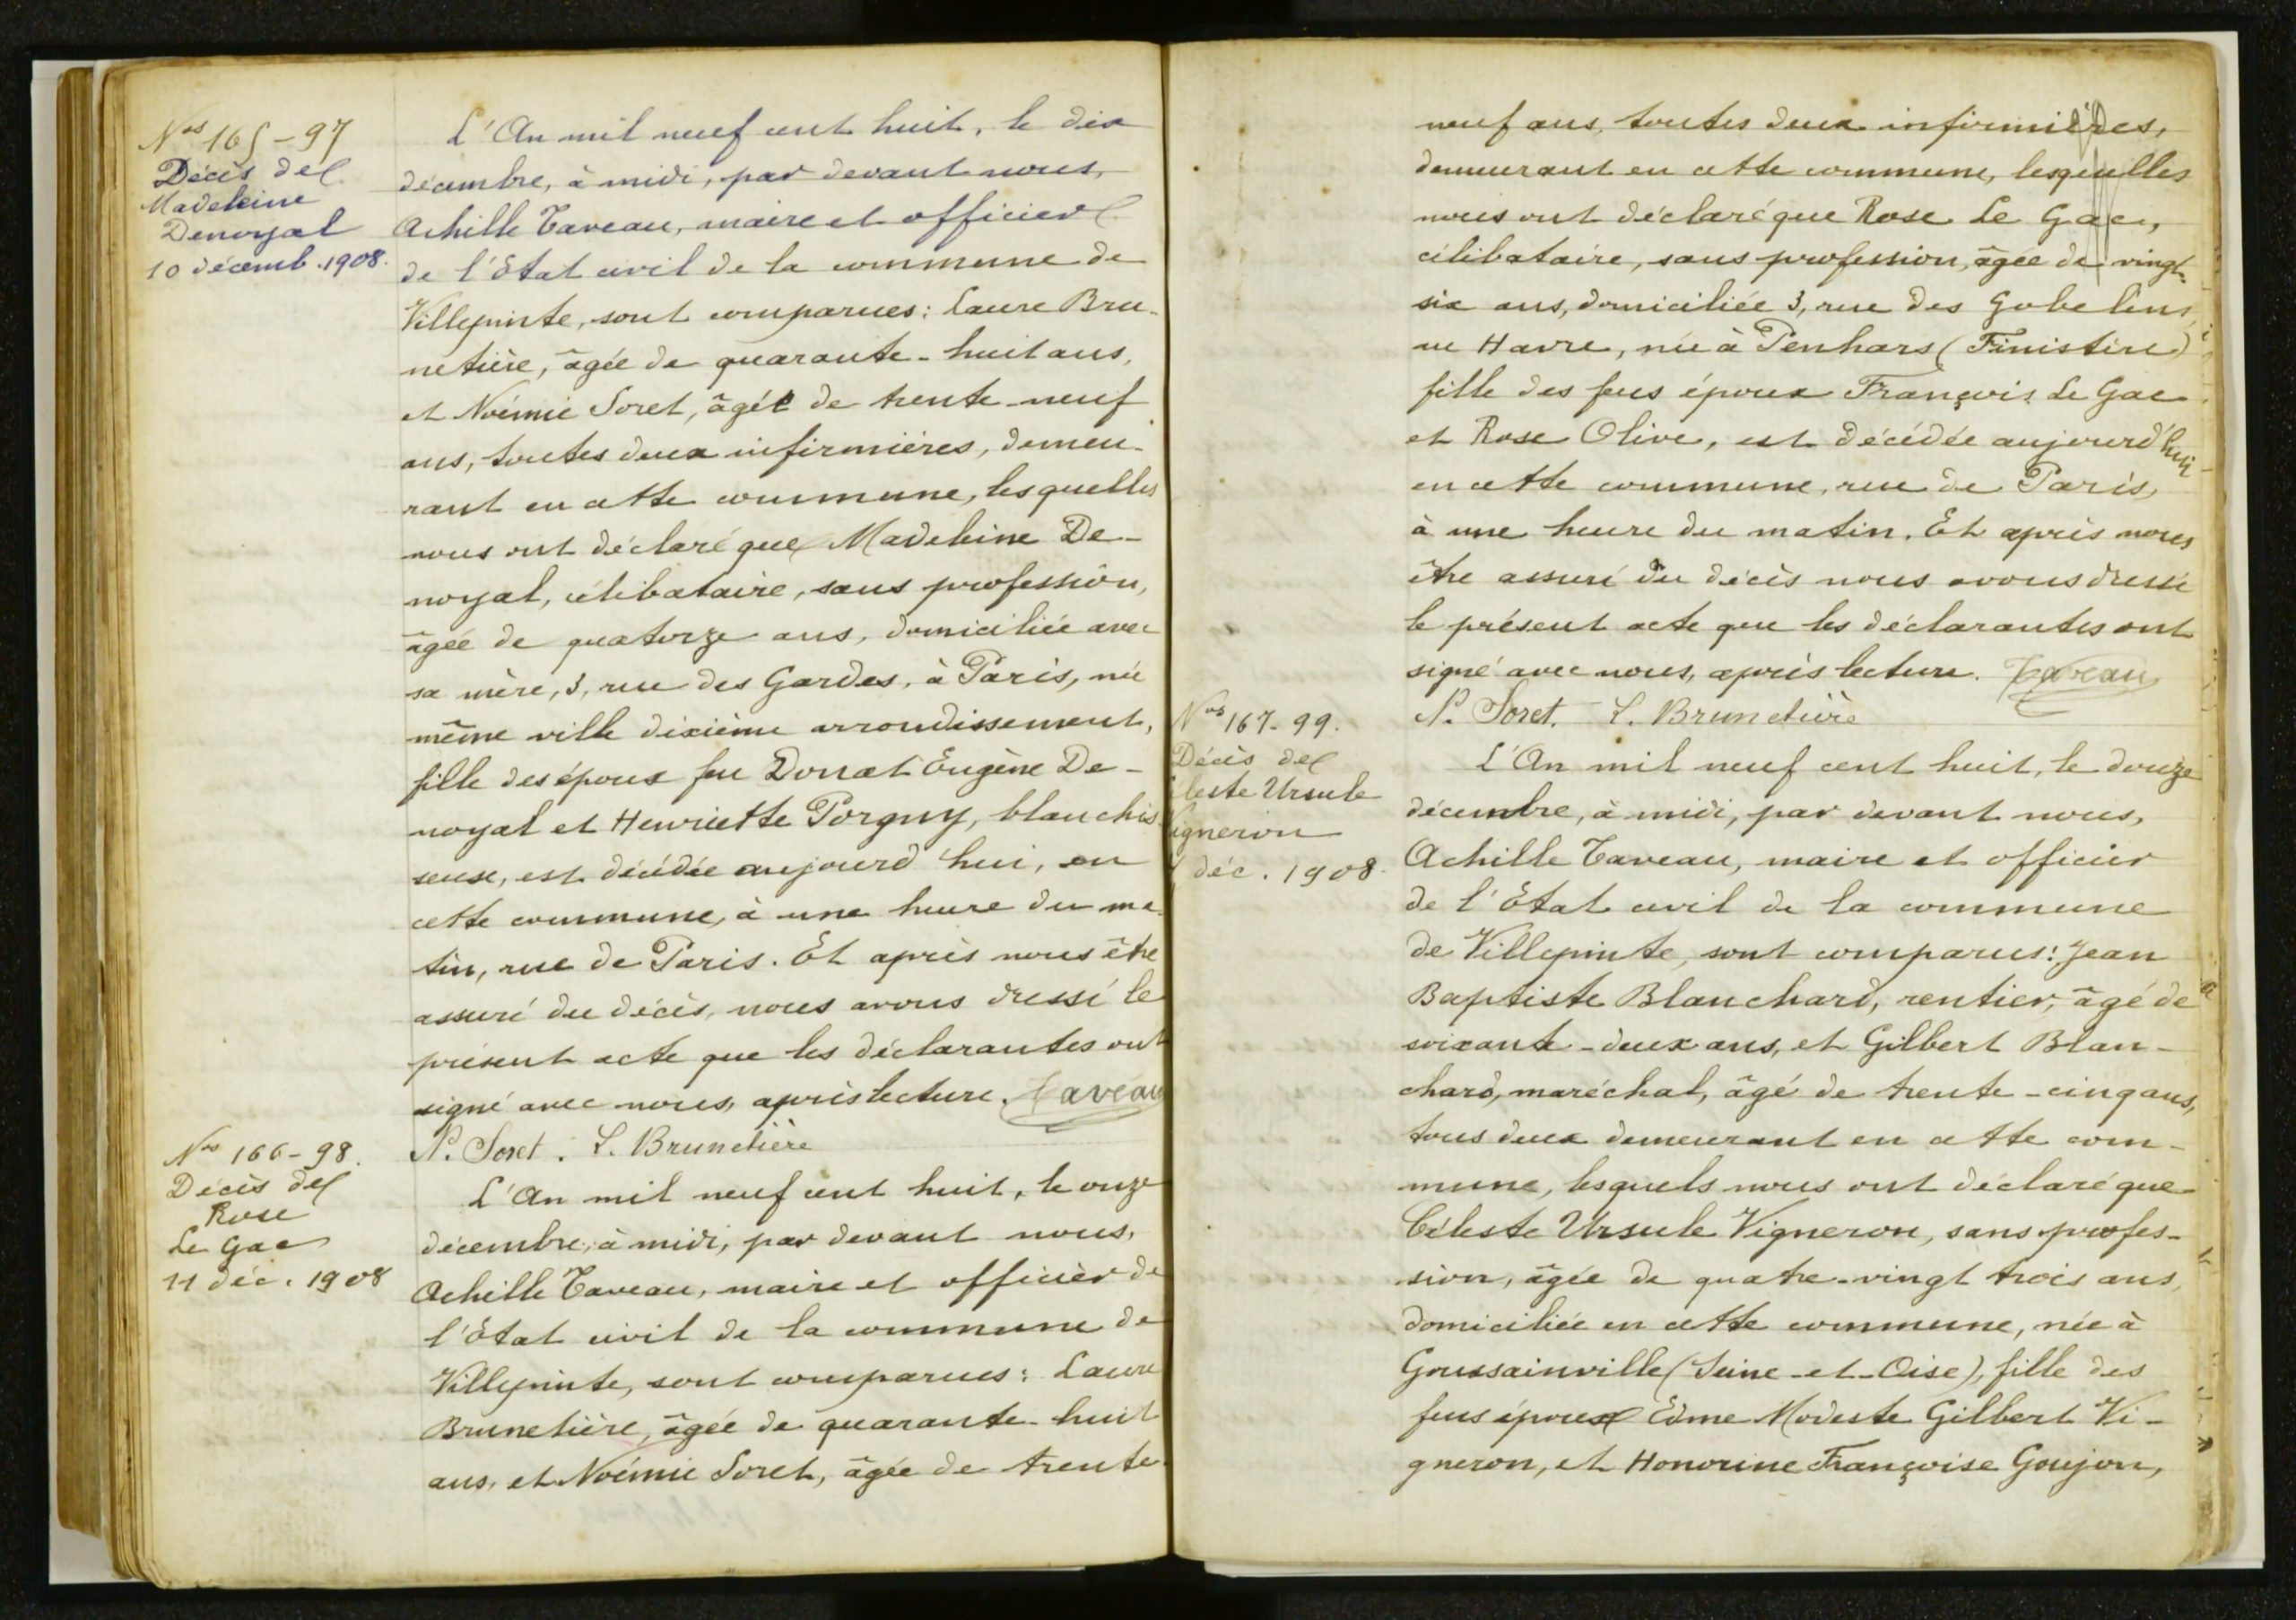 Nos 165-97
Décès de
Madeleine
Denoyal
10 décemb. 1908.
L'An mil neuf cent huit, le dix
décembre, à midi, par devant nous,
Achille Taveau, maire et officier
de l'Etat civil de la commune de
Villepinte, sont comparues: Laure Bru-
netière, âgée de quarante-huit ans,
et Noémie Soret, âgée de trente-neuf
ans, toutes deux infirmières, demeu-
rant en cette commune, lesquelles
nous ont déclaré que Madeleine De-
noyal, célibataire, sans profession,
âgée de quatorze ans, domiciliée avec
sa mère, 3, rue des Gardes, à Paris, née
même ville dixième arrondissement,
fille des époux feu Donat Eugène De-
noyal et Henriette Porgny, blanchis-
seuse, est décédée aujourd'hui, en
cette commune, à une heure du ma-
tin, rue de Paris. Et après nous être
assuré du décès, nous avons dressé le
présent acte que les déclarantes ont
signé avec nous, après lecture. Taveau
N. Soret. L. Brunetière
Nos 166-98.
Décès de
Rose
Le Gac
11 déc. 1908
L'An mil neuf cent huit, le onze
décembre, à midi, par devant nous,
Achille Taveau, maire et officier de
l'Etat civil de la commune de
Villepinte, sont comparues: Laure
Brunetière, âgée de quarante-huit
ans, et Noémie Soret, âgée de trente-
neuf ans, toutes deux infirmières,
demeurant en cette commune, lesquelles
nous ont déclaré que Rose Le Gac,
célibataire, sans profession, âgée de vingt-
six ans, domiciliée 3, rue des Gobelins,
au Havre, née à Penhars (Finistère)
fille des feus époux François Le Gac
et Rose Olive, est décédée aujourd'hui
en cette commune, rue de Paris,
à une heure du matin. Et après nous
être assuré du décès nous avons dressé
le présent acte que les déclarantes ont
signé avec nous, après lecture. Taveau
N. Soret. L. Brunetière
Nos 167-99.
Décès de
éleste Ursule
igneron
déc. 1908.
L'An mil neuf cent huit, le douze
décembre, à midi, par devant nous,
Achille Taveau, maire et officier
de l'Etat civil de la commune
de Villepinte, sont comparus: Jean
Baptiste Blanchard, rentier, âgé de
soixante-deux ans, et Gilbert Blan-
chard, maréchal, âgé de trente-cinq ans,
tous deux demeurant en cette com-
mune, lesquels nous ont déclaré que
Céleste Ursule Vigneron, sans profes-
sion, âgée de quatre-vingt trois ans,
domiciliée en cette commune, née à
Goussainville (Seine-et-Oise), fille des
feus époux Edme Modeste Gilbert Vi-
gneron, et Honorine Françoise Goujon,